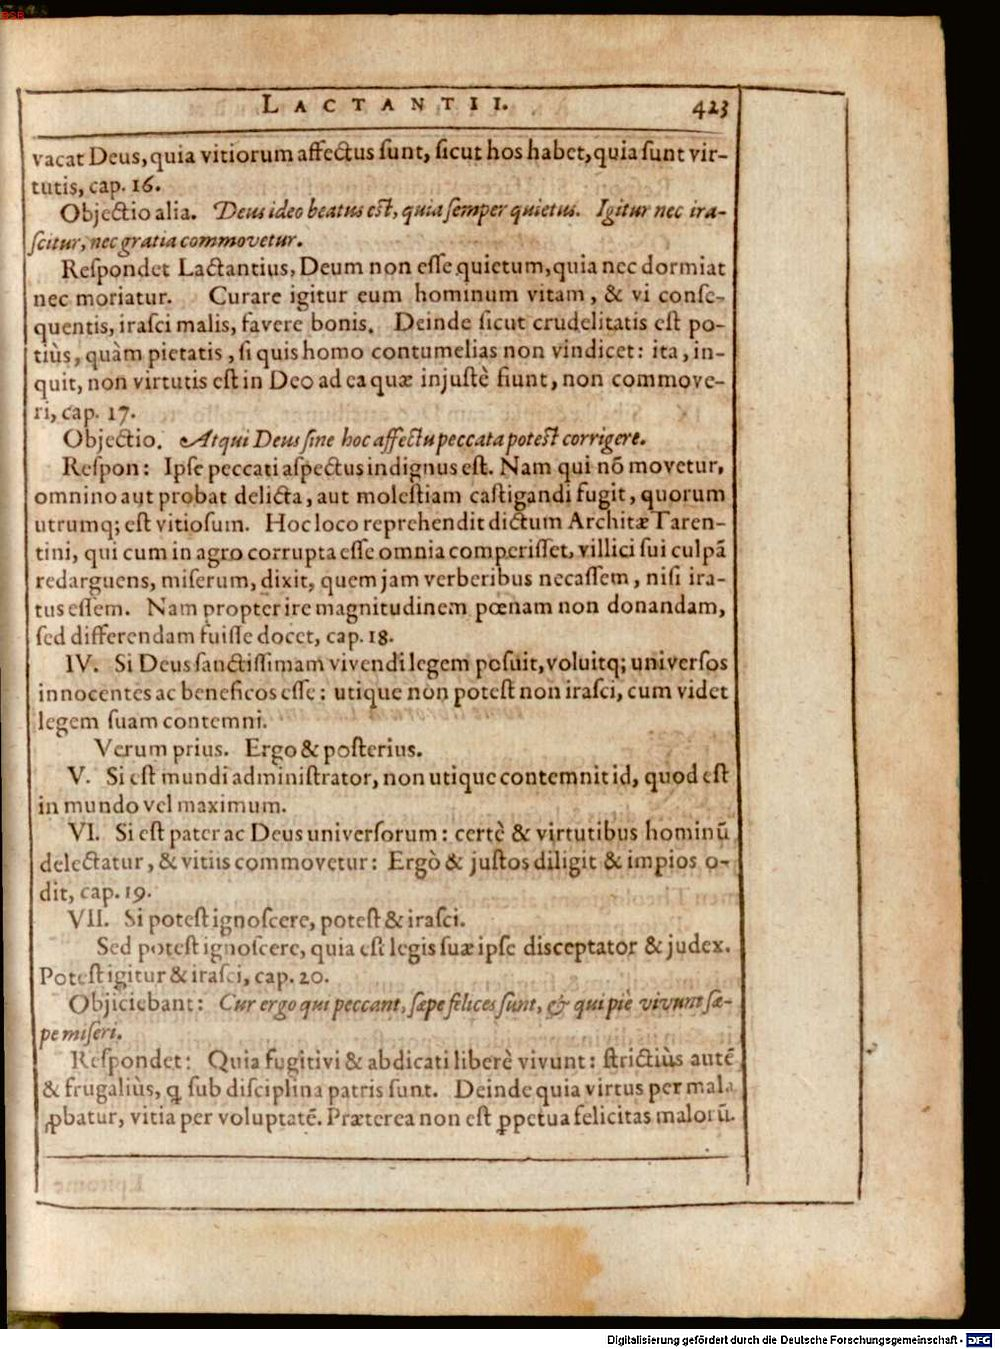 BSB
LACTANTII. 423
vacat Deus, quia vitiorum affectus sunt, sicut hos habet, quia sunt vir-
tutis, cap. 16.
Objectio alia. Deus ideo beatus est, quia semper quietus. Igitur nec ira-
scitur, nec gratia commovetur.
Respondet Lactantius, Deum non esse quietum, quia nec dormiat
nec moriatur. Curare igitur eum hominum vitam, & vi conse-
quentis, irasci malis, favere bonis. Deinde sicut crudelitatis est po-
tiùs, quàm pietatis, si quis homo contumelias non vindicet: ita, in-
quit, non virtutis est in Deo ad ea quæ injustè fiunt, non commove-
ri, cap. 17.
Objectio. Atqui Deus sine hoc affectu peccata potest corrigere.
Respon: Ipse peccati aspectus indignus est. Nam qui nō movetur,
omnino aut probat delicta, aut molestiam castigandi fugit, quorum
utrumq; est vitiosum. Hoc loco reprehendit dictum Architæ Taren-
tini, qui cum in agro corrupta esse omnia comperisset, villici sui culpā
redarguens, miserum, dixit, quem jam verberibus necassem, nisi ira-
tus essem. Nam propter iræ magnitudinem pœnam non donandam,
sed differendam fuisse docet, cap. 18.
IV. Si Deus sanctissimam vivendi legem posuit, voluitq; universos
innocentes ac beneficos esse: utique non potest non irasci, cum videt
legem suam contemni.
Verum prius. Ergo & posterius.
V. Si est mundi administrator, non utique contemnit id, quod est
in mundo vel maximum.
VI. Si est pater ac Deus universorum: certè & virtutibus hominū
delectatur, & vitiis commovetur: Ergò & justos diligit & impios o-
dit, cap. 19.
VII. Si potest ignoscere, potest & irasci.
Sed potest ignoscere, quia est legis suæ ipse disceptator & judex.
Potest igitur & irasci, cap. 20.
Objiciebant: Cur ergo qui peccant, sæpe felices sunt, & qui piè vivunt sæ-
pe miseri.
Respondet: Quia fugitivi & abdicati liberè vivunt: strictiùs autē
& frugaliùs, ꝗ sub disciplina patris sunt. Deinde quia virtus per mala
ꝓbatur, vitia per voluptatē. Præterea non est ꝑpetua felicitas malorū.
Digitalisierung gefördert durch die Deutsche Forschungsgemeinschaft - DFG